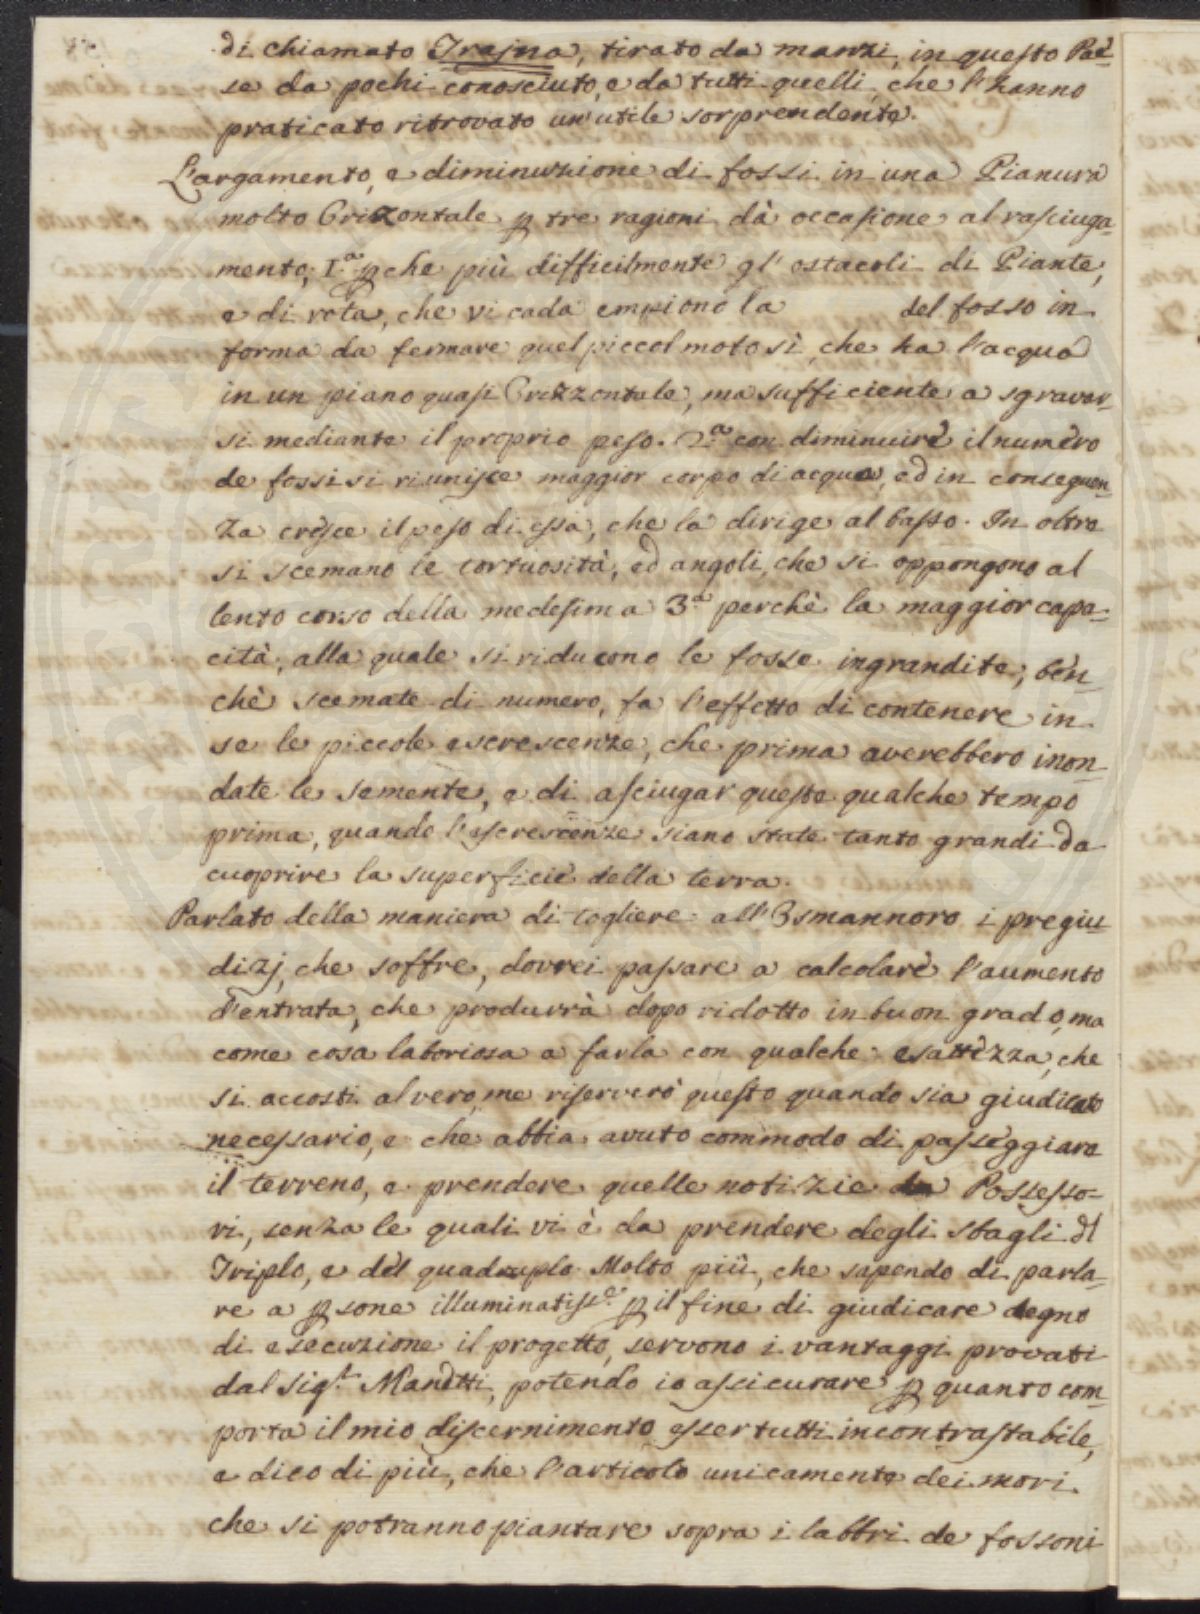 di chiamato Trajna, tirato da manzi, in questo Pae-
se da pochi conosciuto, e da tutti quelli, che l'hanno
praticato ritrovato un'utile sorprendente.
L'argamento, e diminuzione di fossi in una Pianura
molto Orizontale p tre ragioni dà occasione al rasciuga-
mento; I.a pche più difficilmente gl'ostacoli di Piante,
e di rota, che vi cada empiono la del fosso in
forma da fermare quel piccol moto sì, che ha l'acqua
in un piano quasi Orizzontale, ma sufficiente a sgravar-
si mediante il proprio peso. 2.a con diminuire il numero
de fossi si riunisce maggior corpo di acqua, ed in conseguen-
za cresce il peso di essa, che la dirige al basso. In oltre
si scemano le tortuosità, ed angoli, che si oppongono al
lento corso della medesima 3.a perchè la maggior capa-
cità, alla quale si riducono le fosse ingrandite, ben-
chè scemate di numero, fa l'effetto di contenere in
se le piccole escrescenze, che prima averebbero inon-
date le semente, e di asciugar queste qualche tempo
prima, quando l'escrescenze siano state tanto grandi da
cuoprire la superficie della terra.
Parlato della maniera di togliere all'Osmannoro i pregiu-
dizj, che soffre, dovrei passare a calcolare l'aumento
d'entrata, che produrrà dopo ridotto in buon grado, ma
come cosa laboriosa a farla con qualche esattezza, che
si accosti al vero, me riserverò questo quando sia giudicato
necessario, e che abbia avuto commodo di passeggiare
il terreno, e prendere quelle notizie da Possesso-
ri, senza le quali vi è da prendere degli sbagli del
Triplo, e del quadruplo. Molto più, che sapendo di parla-
re a psone illuminatisse. p il fine di giudicare degno
di esecuzione il progetto, servono i vantaggi provati
dal Sigr. Manetti, potendo io assicurare p quanto com-
porta il mio discernimento esser tutti incontrastabile,
e dico di più, che l'articolo unicamente dei mori
che si potranno piantare sopra i labbri de fossoni